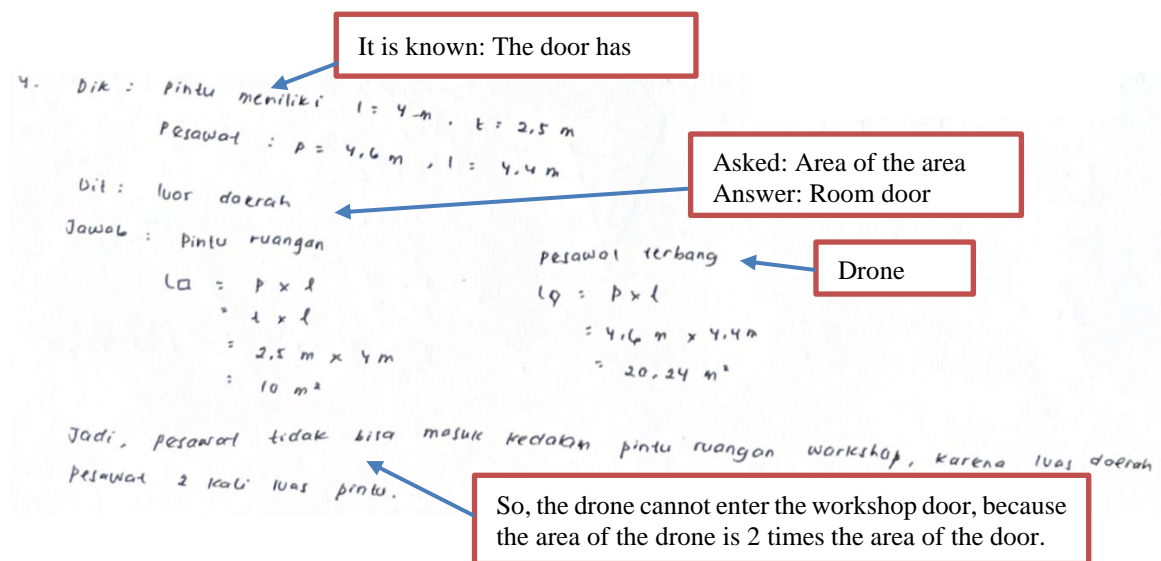 It is known: The door has
4. Dik : Pintu memiliki l = 4 m . t = 2,5 m
Pesawat : p = 4,6 m , l = 4,4 m
Asked: Area of the area
Answer: Room door
Dit : luas daerah
Jawab : Pintu ruangan
pesawat terbang
Drone
L▭ = p x l
= t x l
= 2,5 m x 4 m
= 10 m²
L▭ = p x l
= 4,6 m x 4,4 m
= 20,24 m²
Jadi, pesawat tidak bisa masuk kedalam pintu ruangan workshop, karena luas daerah
pesawat 2 kali luas pintu.
So, the drone cannot enter the workshop door, because
the area of the drone is 2 times the area of the door.